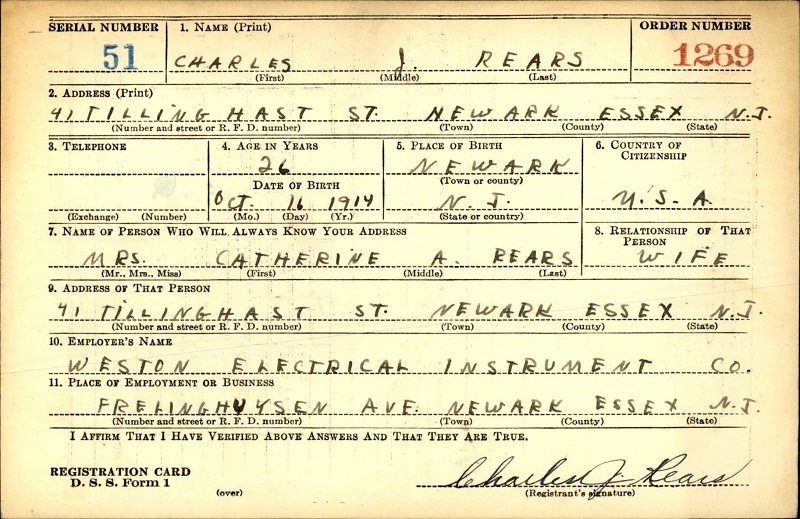 SERIAL NUMBER 1. NAME (Print) ORDER NUMBER
51 CHARLES J. REARS 1269
(First) (Middle) (Last)
2. ADDRESS (Print)
41 TILLINGHAST ST. NEWARK ESSEX N.J.
(Number and street or R. F. D. number) (Town) (County) (State)
3. TELEPHONE 4. AGE IN YEARS 5. PLACE OF BIRTH 6. COUNTRY OF CITIZENSHIP
26 NEWARK
DATE OF BIRTH (Town or county)
OCT. 16 1914 N. J. U.S.A
(Exchange) (Number) (Mo.) (Day) (Yr.) (State or country)
7. NAME OF PERSON WHO WILL ALWAYS KNOW YOUR ADDRESS 8. RELATIONSHIP OF THAT PERSON
MRS. CATHERINE A. REARS WIFE
(Mr., Mrs., Miss) (First) (Middle) (Last)
9. ADDRESS OF THAT PERSON
41 TILLINGHAST ST. NEWARK ESSEX N.J.
(Number and street or R. F. D. number) (Town) (County) (State)
10. EMPLOYER'S NAME
WESTON ELECTRICAL INSTRUMENT CO.
11. PLACE OF EMPLOYMENT OR BUSINESS
FRELINGHUYSEN AVE. NEWARK ESSEX N.J.
(Number and street or R. F. D. number) (Town) (County) (State)
I AFFIRM THAT I HAVE VERIFIED ABOVE ANSWERS AND THAT THEY ARE TRUE.
REGISTRATION CARD
D. S. S. Form 1 Charles J. Rears
(over) (Registrant's signature)